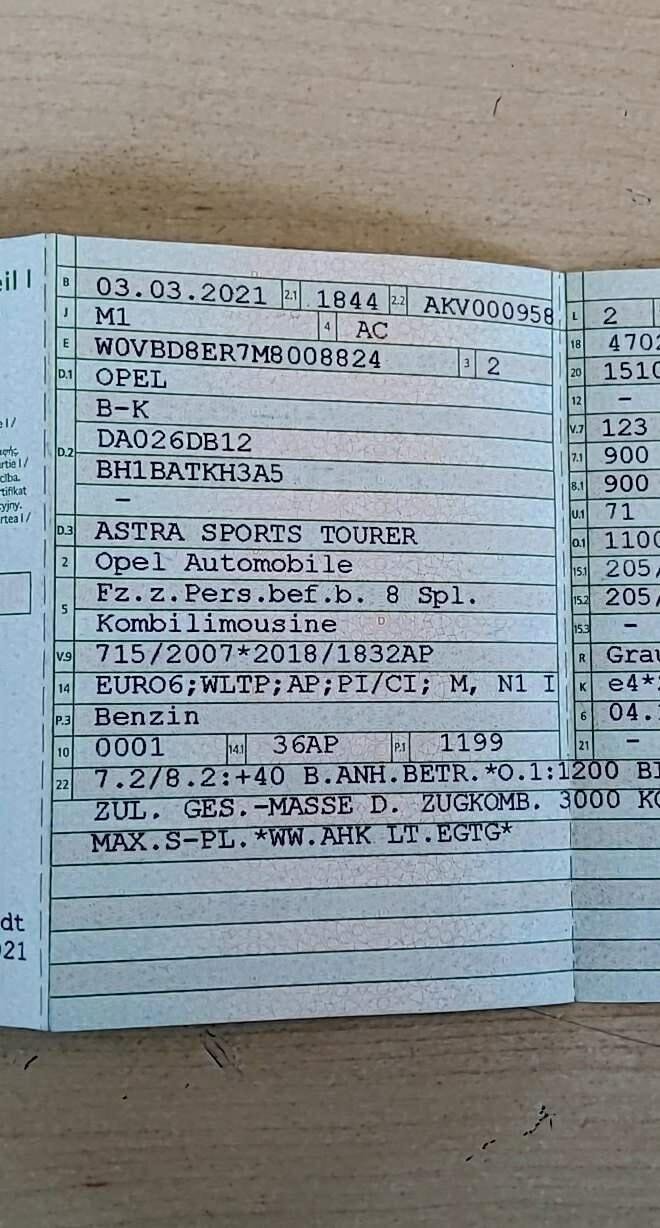 eil I
B 03.03.2021 2.1 1844 2.2 AKV000958
J M1 4 AC
E W0VBD8ER7M8008824 3 2
D.1 OPEL
D.2 B-K
DA026DB12
BH1BATKH3A5
–
D.3 ASTRA SPORTS TOURER
2 Opel Automobile
5 Fz.z.Pers.bef.b. 8 Spl.
Kombilimousine
V.9 715/2007*2018/1832AP
14 EURO6;WLTP;AP;PI/CI; M, N1 I
P.3 Benzin
10 0001 14.1 36AP P.1 1199
22 7.2/8.2:+40 B.ANH.BETR.*O.1:1200 BI
ZUL. GES.-MASSE D. ZUGKOMB. 3000 KG
MAX.S-PL.*WW.AHK LT.EGTG*
L 2
18 4702
20 1510
12 –
V.7 123
7.1 900
8.1 900
U.1 71
O.1 1100
15.1 205/
15.2 205/
15.3 –
R Grau
K e4*
6 04.
21 –
e I /
rtie I /
tifikat
rtea I /
dt
021